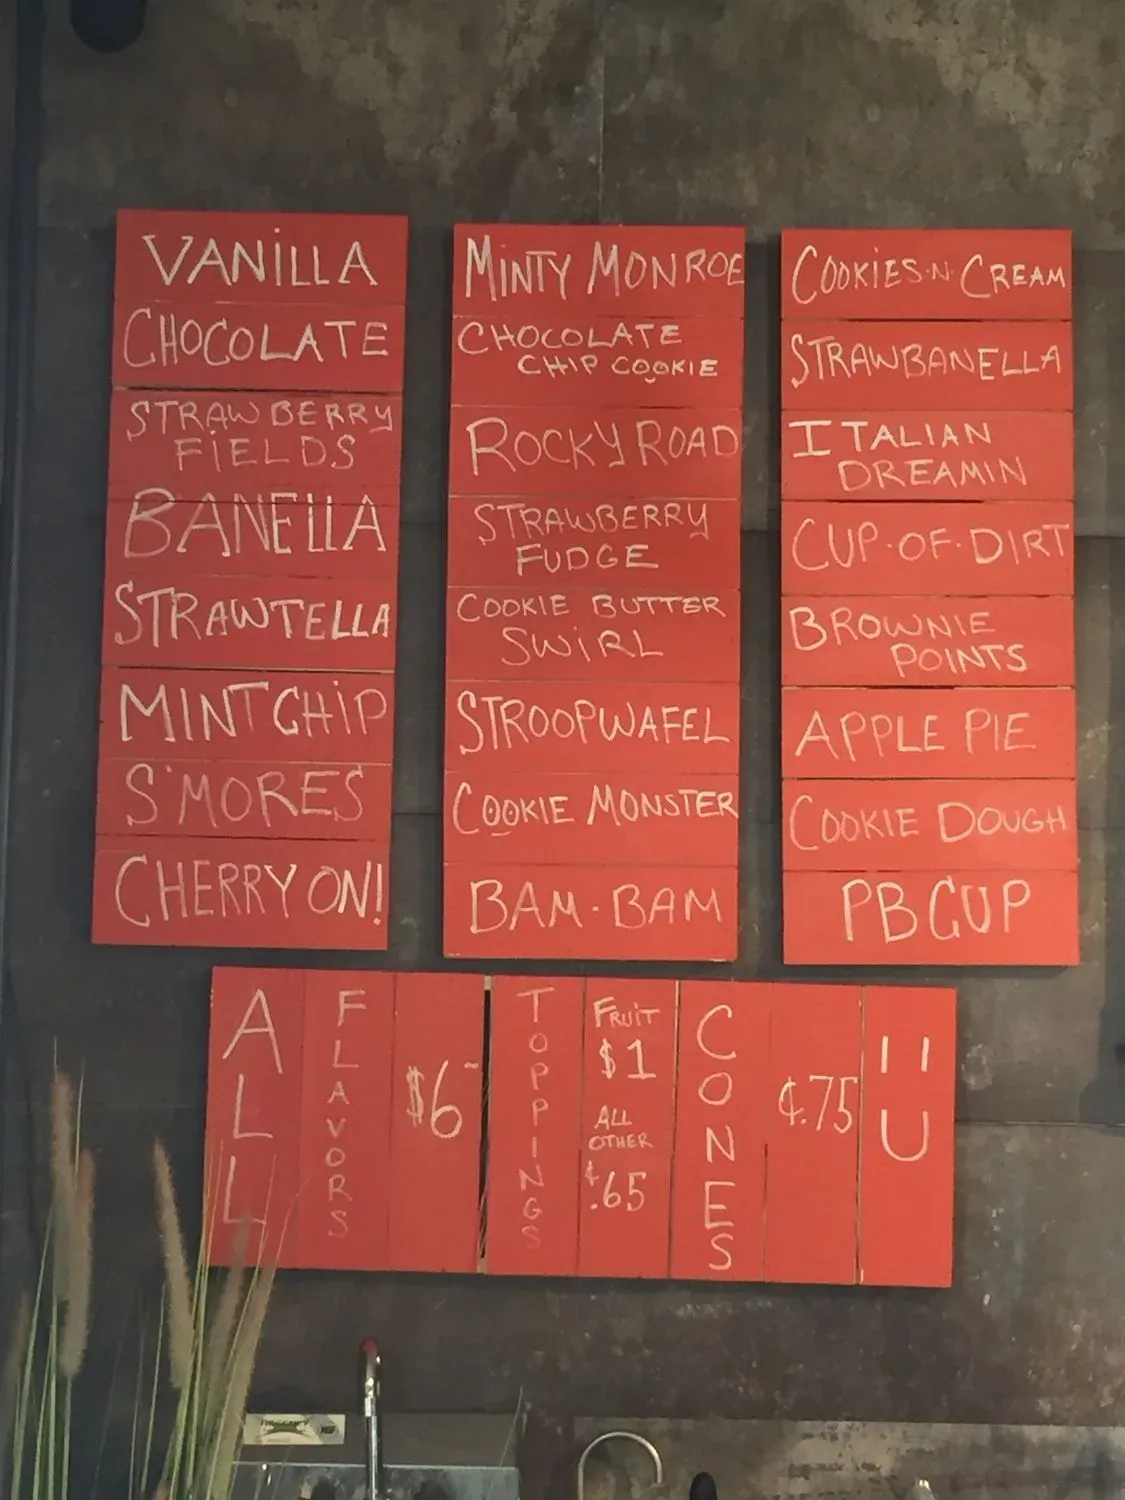 VANILLA
CHOCOLATE
STRAWBERRY
FIELDS
BANELLA
STRAWTELLA
MINT CHIP
S'MORES
CHERRY ON!
MINTY MONROE
CHOCOLATE
CHIP COOKIE
ROCKY ROAD
STRAWBERRY
FUDGE
COOKIE BUTTER
SWIRL
STROOPWAFEL
COOKIE MONSTER
BAM·BAM
COOKIES·N·CREAM
STRAWBANELLA
ITALIAN
DREAMIN
CUP·OF·DIRT
BROWNIE
POINTS
APPLE PIE
COOKIE DOUGH
PB CUP
ALL
FLAVORS
$6-
TOPPINGS
FRUIT
$1
ALL
OTHER
¢.65
CONES
¢.75